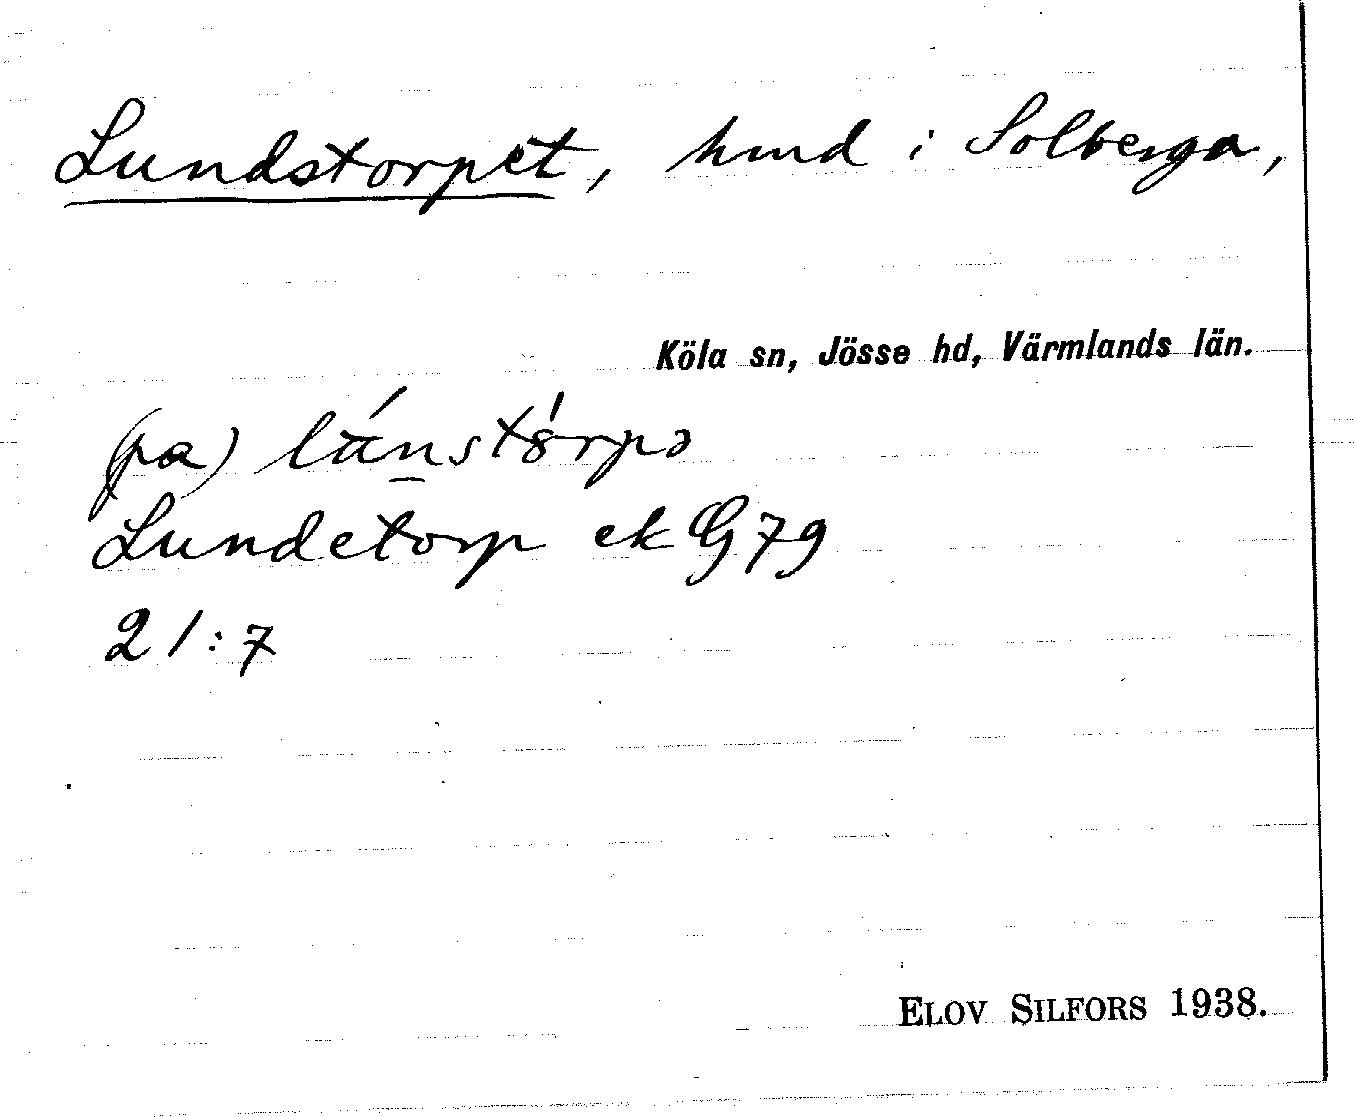 Lundstorpet, hmd i Solberga,
Köla sn, Jösse hd, Värmlands län.
(pa)
Lundetorp ek G 79
21:7
ELOV SILFORS 1938.